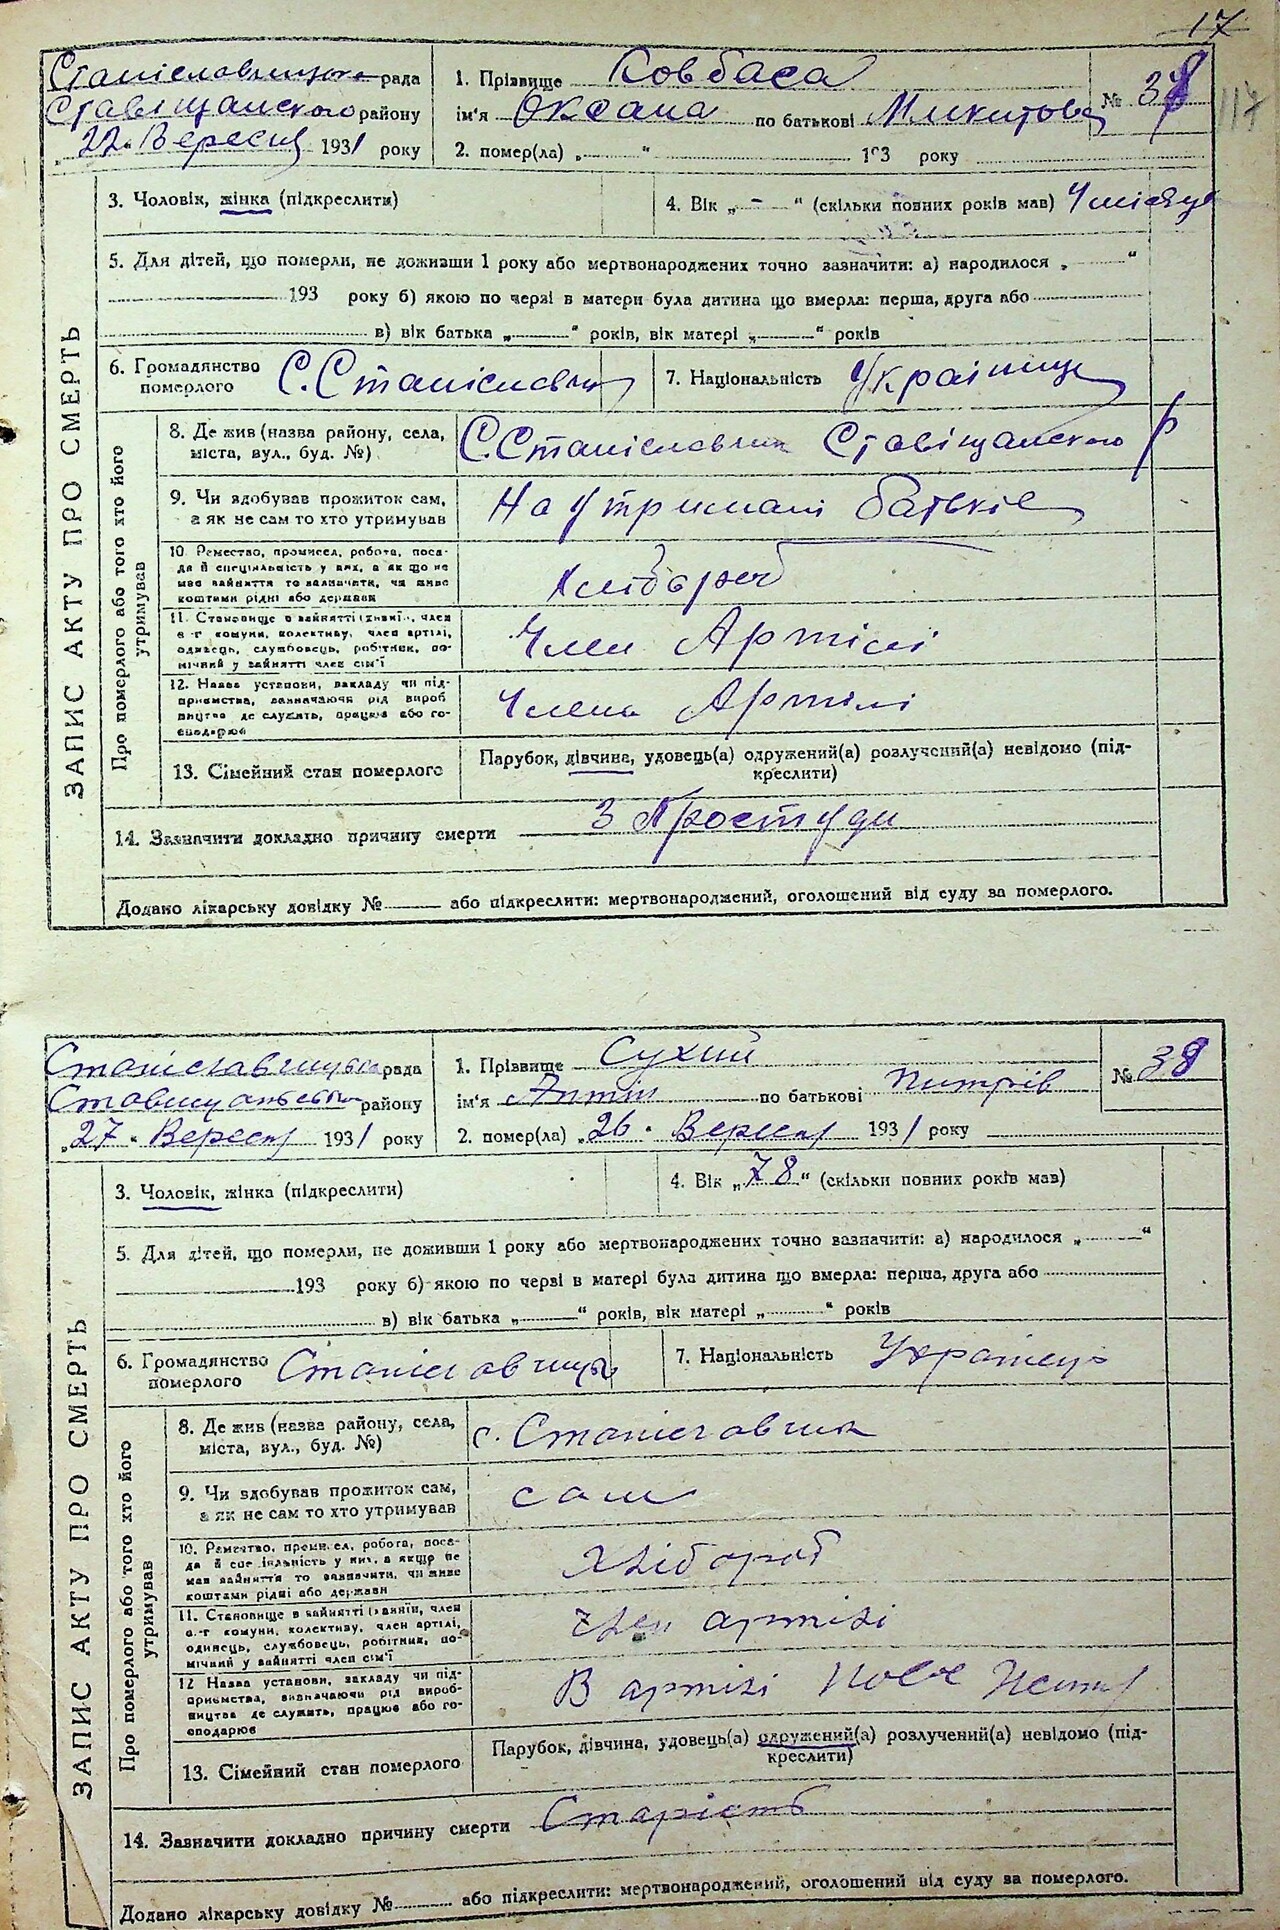 17
117
Станіславчицька рада
Ставіщанского району
„22“ Вересня 1931 року
1. Прізвище Ковбаса
ім'я Оксана по батькові Микитовна
№ 38
2. помер(ла) „ “ 193 року
3. Чоловік, жінка (підкреслити)
4. Вік „-“ (скільки повних років мав) 4 місяця
5. Для дітей, що померли, не доживши 1 року або мертвонароджених точно зазначити: а) народилося „ “
193 року б) якою по черзі в матери була дитина що вмерла: перша, друга або
в) вік батька „ “ років, вік матері „ “ років
6. Громадянство померлого С. Станіславчик
7. Національність Українця
ЗАПИС АКТУ ПРО СМЕРТЬ
Про померлого або того хто його утримував
8. Де жив (назва району, села, міста, вул., буд. №) С. Станіславчик Ставіщанского р
9. Чи здобував прожиток сам, а як не сам то хто утримував На утримані батьків
10. Ремество, промисел, робота, посада й спеціяльність у них, а як що не мав зайняття то зазначити, чи живе коштами рідні або держави Хлібороб
11. Становище в зайнятті (хазяїн, член с-г комуни, колективу, член артілі, одинець, службовець, робітник, помічний у зайнятті член сім'ї Член Артілі
12. Назва установи, закладу чи підприємства, зазначаючи рід виробництва де служить, працює або господарює Члена Артілі
13. Сімейний стан померлого
Парубок, дівчина, удовець(а) одружений(а) розлучений(а) невідомо (підкреслити)
14. Зазначити докладно причину смерти З Простуди
Додано лікарську довідку № або підкреслити: мертвонароджений, оголошений від суду за померлого.
Станіславчицька рада
району
„27“ Вересня 1931 року
1. Прізвище Сухий
ім'я Антін по батькові
№ 38
2. помер(ла) „26“ Вересня 1931 року
3. Чоловік, жінка (підкреслити)
4. Вік „78“ (скільки повних років мав)
5. Для дітей, що померли, не доживши 1 року або мертвонароджених точно зазначити: а) народилося „ “
193 року б) якою по черзі в матері була дитина що вмерла: перша, друга або
в) вік батька „ “ років, вік матері „ “ років
6. Громадянство померлого
7. Національність Українець
ЗАПИС АКТУ ПРО СМЕРТЬ
Про померлого або того хто його утримував
8. Де жив (назва району, села, міста, вул., буд. №) с. Станіславчик
9. Чи здобував прожиток сам, а як не сам то хто утримував сам
10. Ремество, промисел, робота, посада й спеціяльність у них, а якщо не мав зайняття то зазначити, чи живе коштами рідні або держави Хлібороб
11. Становище в зайнятті (хазяїн, член с-г комуни, колективу, член артілі, одинець, службовець, робітник, помічний у зайнятті член сім'ї член артілі
12 Назва установи, закладу чи підприємства, визначаючи рід виробництва де служить, працює або господарює В артілі Нове
13. Сімейний стан померлого
Парубок, дівчина, удовець(а) одружений(а) розлучений(а) невідомо (підкреслити)
14. Зазначити докладно причину смерти Старість
Додано лікарську довідку № або підкреслити: мертвонароджений, оголошений від суду за померлого.